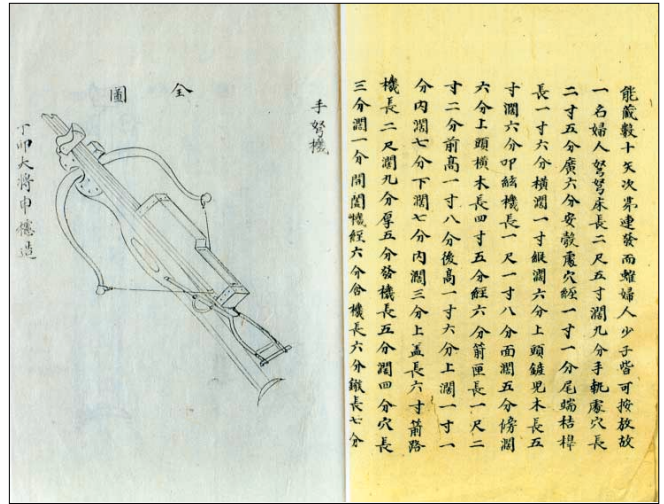 能藏數十矢次第連發而雖婦人少子皆可按放故
一名婦人弩弩床長二尺五寸濶九分手執處穴長
二寸五分廣六分安彀處穴經一寸一分尾端桔槹
長一寸六分橫濶一寸縱濶六分上頭木長五
寸濶六分叩絃機長一尺一寸八分面濶五分傍濶
六分上頭橫木長四寸五分經六分箭匣長一尺二
寸二分前高一寸八分後高一寸六分上濶一寸一
分內濶七分下濶七分內濶三分上盖長六寸箭路
機長二尺濶九分厚五分發機長五分濶四分穴長
三分濶一分開闔機經六分合機長六分長七分
手弩機
全圖
丁卯大將申櫶造